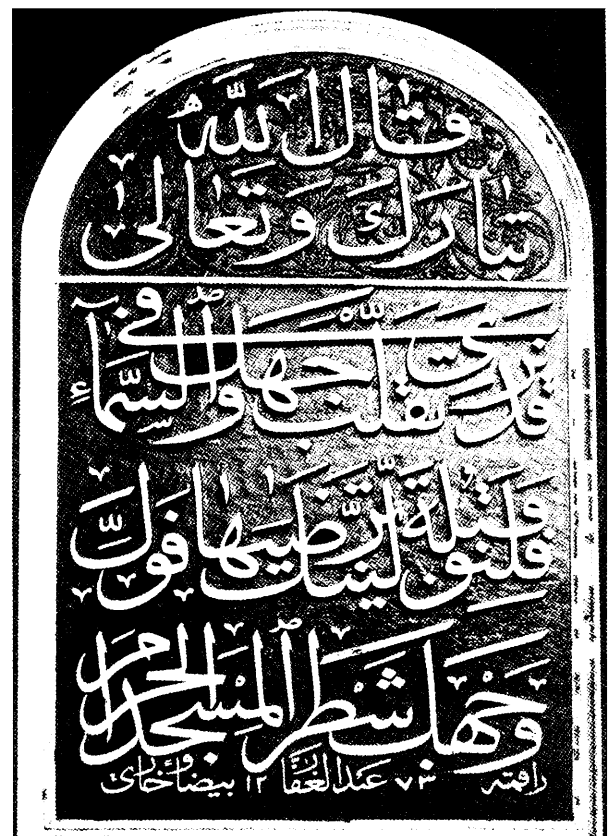 قال الله
تبارك وتعالى
قد نرى تقلب وجهك في السمآء
فلنولينك قبلة ترضىها فول
وجهك شطر المسجد الحرام
راقمه ٧٣ عبد الغفار ١٢ بيضاوي